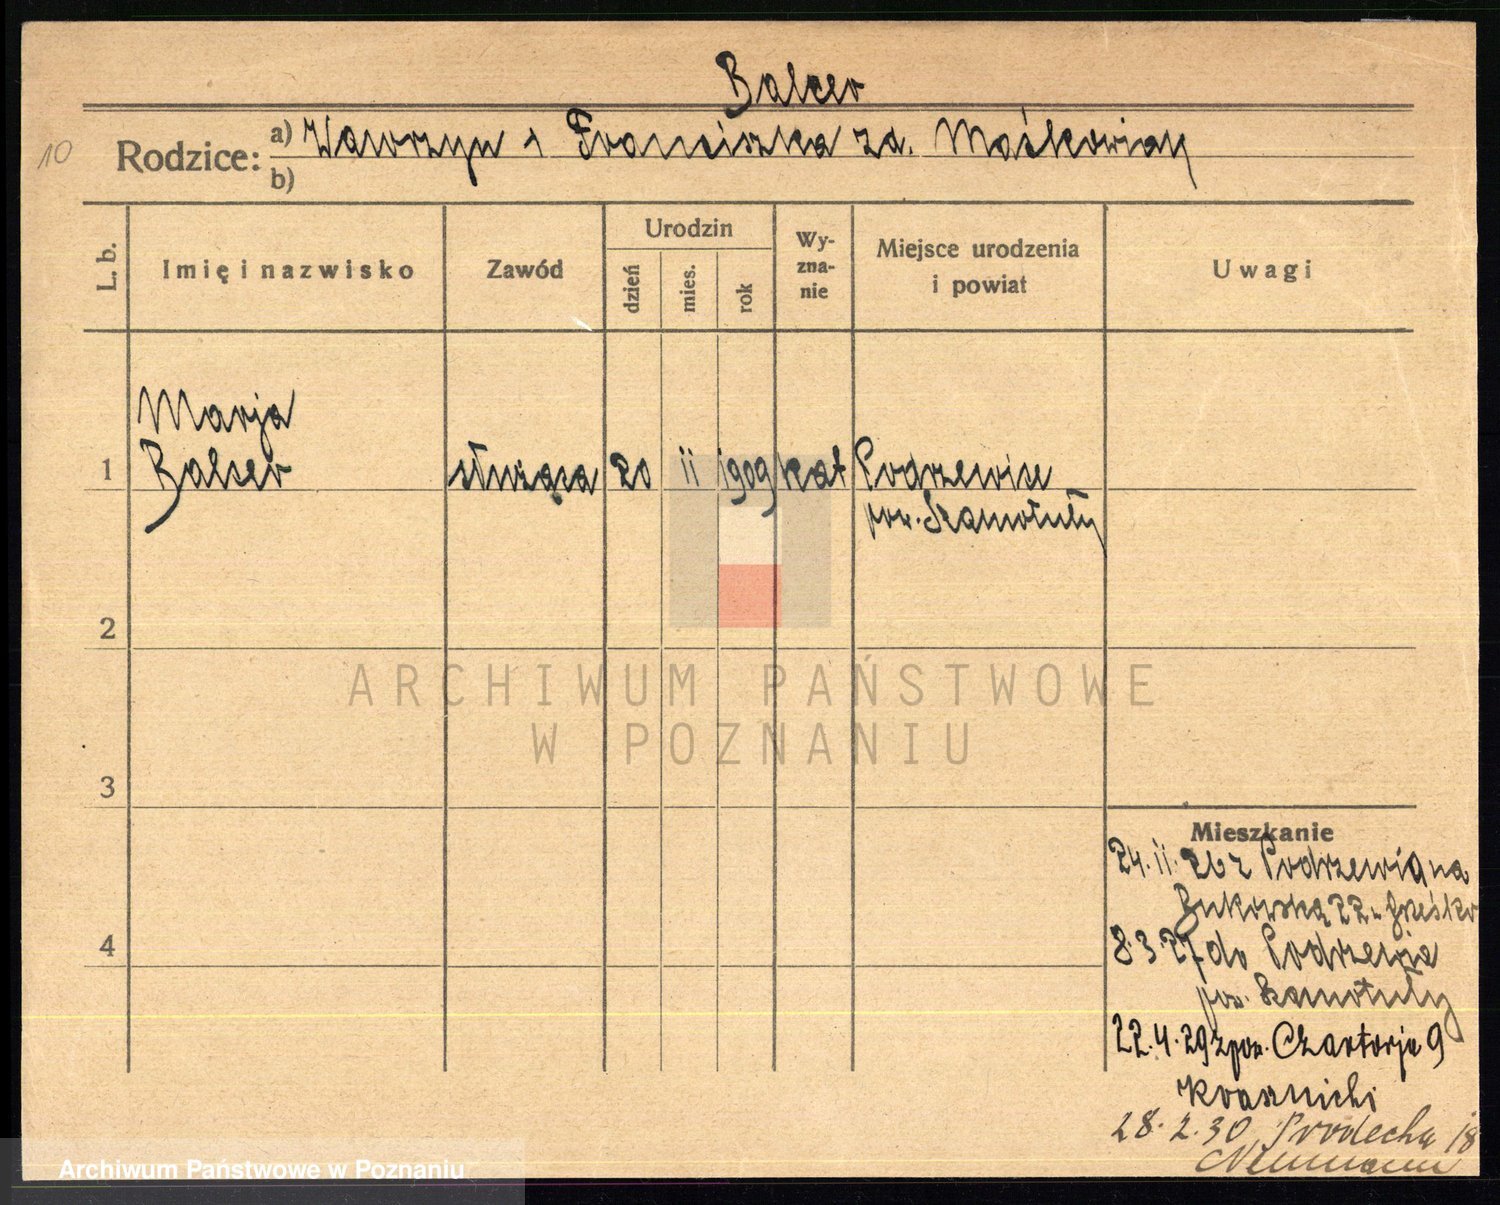 Balcer
10
Rodzice: a) Wawrzyn i Franciszka za. Maśkowiak
b)
L. b.
Imię i nazwisko
Zawód
Urodzin
dzień
mies.
rok
Wy-
zna-
nie
Miejsce urodzenia
i powiat
Uwagi
Marja
1 Balcer służąca 20 ii 1909 kat Podrzewice
pow. Szamotuły
2
3
4
Mieszkanie
24.ii.26 z Podrzewia na
Bukowską 22
8.3.27 do Podrzewia
pow. Szamotuły
22.4.29 z pow. Czartorja 9
28.2.30
Neumann
ARCHIWUM PAŃSTWOWE
W POZNANIU
Archiwum Państwowe w Poznaniu